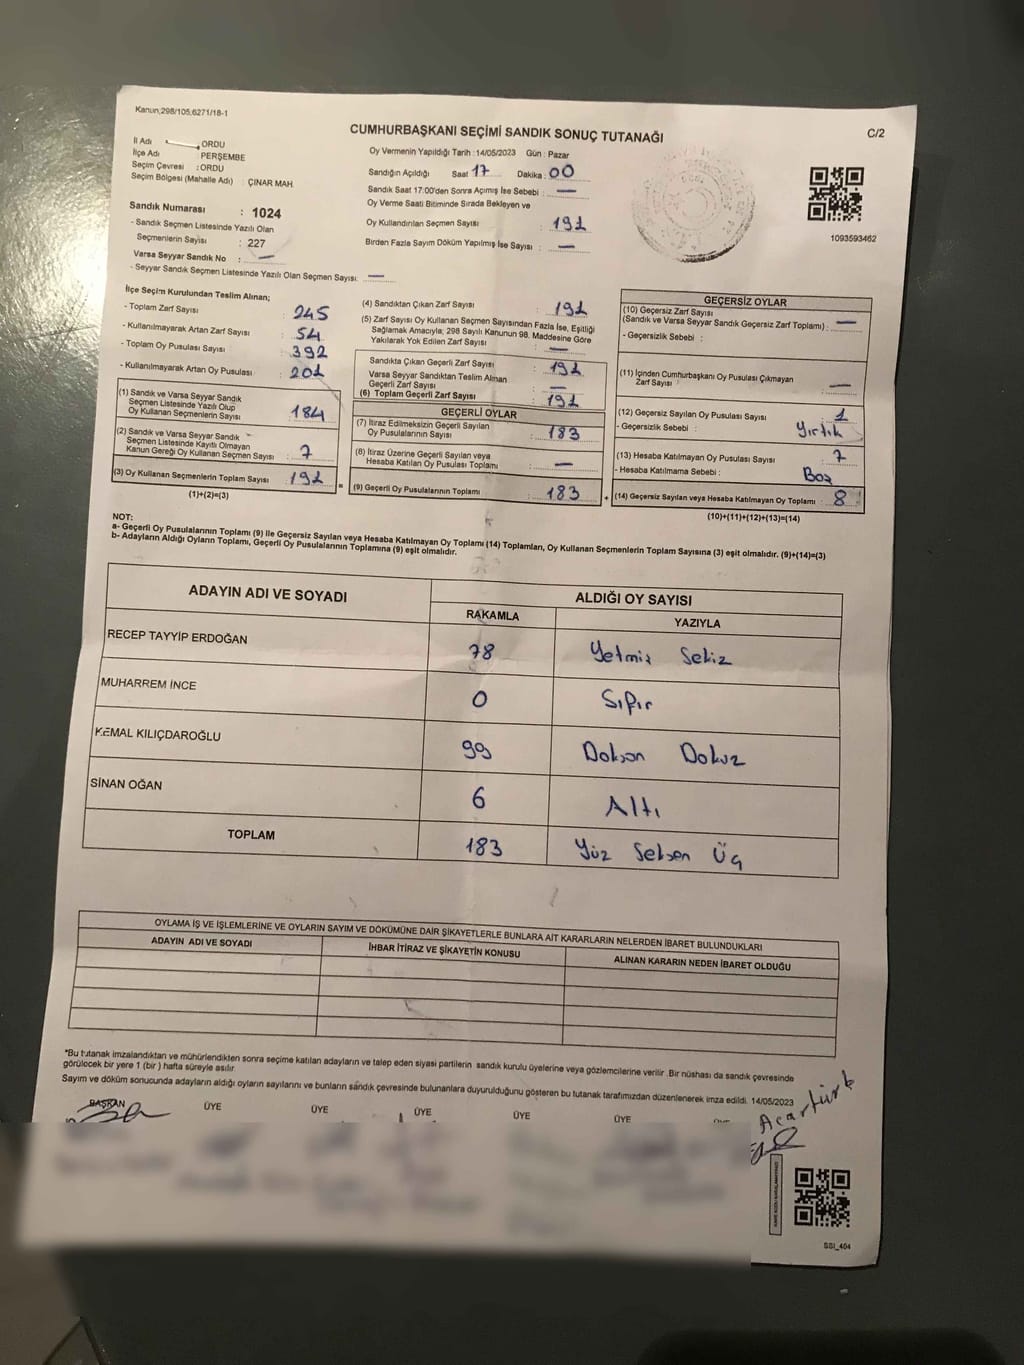 Kanun;298/105,6271/18-1
C/2
CUMHURBAŞKANI SEÇİMİ SANDIK SONUÇ TUTANAĞI
İl Adı : ORDU
İlçe Adı : PERŞEMBE
Seçim Çevresi : ORDU
Seçim Bölgesi (Mahalle Adı) : ÇINAR MAH.
Oy Vermenin Yapıldığı Tarih :14/05/2023 Gün : Pazar
Sandığın Açıldığı Saat : 17 Dakika : 00
Sandık Saat 17:00'den Sonra Açımış İse Sebebi : —
Oy Verme Saati Bitiminde Sırada Bekleyen ve
Oy Kullandırılan Seçmen Sayısı : 191
Birden Fazla Sayım Döküm Yapılmış İse Sayısı : —
1093593462
Sandık Numarası : 1024
- Sandık Seçmen Listesinde Yazılı Olan
Seçmenlerin Sayısı : 227
Varsa Seyyar Sandık No : —
- Seyyar Sandık Seçmen Listesinde Yazılı Olan Seçmen Sayısı: —
İlçe Seçim Kurulundan Teslim Alınan;
- Toplam Zarf Sayısı : 245
- Kullanılmayarak Artan Zarf Sayısı : 54
- Toplam Oy Pusulası Sayısı : 392
- Kullanılmayarak Artan Oy Pusulası : 201
(1) Sandık ve Varsa Seyyar Sandık
Seçmen Listesinde Yazılı Olup
Oy Kullanan Seçmenlerin Sayısı : 184
(2) Sandık ve Varsa Seyyar Sandık
Seçmen Listesinde Kayıtlı Olmayan
Kanun Gereği Oy Kullanan Seçmen Sayısı : 7
(3) Oy Kullanan Seçmenlerin Toplam Sayısı : 191
(1)+(2)=(3)
(4) Sandıktan Çıkan Zarf Sayısı : 191
(5) Zarf Sayısı Oy Kullanan Seçmen Sayısından Fazla İse, Eşitliği
Sağlamak Amacıyla; 298 Sayılı Kanunun 98. Maddesine Göre
Yakılarak Yok Edilen Zarf Sayısı : —
Sandıkta Çıkan Geçerli Zarf Sayısı : 191
Varsa Seyyar Sandıktan Teslim Alınan
Geçerli Zarf Sayısı : —
(6) Toplam Geçerli Zarf Sayısı : 191
GEÇERLİ OYLAR
(7) İtiraz Edilmeksizin Geçerli Sayılan
Oy Pusulalarının Sayısı : 183
(8) İtiraz Üzerine Geçerli Sayılan veya
Hesaba Katılan Oy Pusulası Toplamı : —
(9) Geçerli Oy Pusulalarının Toplamı : 183
GEÇERSİZ OYLAR
(10) Geçersiz Zarf Sayısı
(Sandık ve Varsa Seyyar Sandık Geçersiz Zarf Toplamı) : —
- Geçersizlik Sebebi :
(11) İçinden Cumhurbaşkanı Oy Pusulası Çıkmayan
Zarf Sayısı : —
(12) Geçersiz Sayılan Oy Pusulası Sayısı : 1
- Geçersizlik Sebebi : Yırtık
(13) Hesaba Katılmayan Oy Pusulası Sayısı : 7
- Hesaba Katılmama Sebebi : Boş
(14) Geçersiz Sayılan veya Hesaba Katılmayan Oy Toplamı : 8
(10)+(11)+(12)+(13)=(14)
NOT:
a- Geçerli Oy Pusulalarının Toplamı (9) ile Geçersiz Sayılan veya Hesaba Katılmayan Oy Toplamı (14) Toplamları, Oy Kullanan Seçmenlerin Toplam Sayısına (3) eşit olmalıdır. (9)+(14)=(3)
b- Adayların Aldığı Oyların Toplamı, Geçerli Oy Pusulalarının Toplamına (9) eşit olmalıdır.
ADAYIN ADI VE SOYADI
ALDIĞI OY SAYISI
RAKAMLA
YAZIYLA
RECEP TAYYİP ERDOĞAN 78 Yetmiş Sekiz
MUHARREM İNCE 0 Sıfır
KEMAL KILIÇDAROĞLU 99 Doksan Dokuz
SİNAN OĞAN 6 Altı
TOPLAM 183 Yüz Seksen Üç
OYLAMA İŞ VE İŞLEMLERİNE VE OYLARIN SAYIM VE DÖKÜMÜNE DAİR ŞİKAYETLERLE BUNLARA AİT KARARLARIN NELERDEN İBARET BULUNDUKLARI
ADAYIN ADI VE SOYADI
İHBAR İTİRAZ VE ŞİKAYETİN KONUSU
ALINAN KARARIN NEDEN İBARET OLDUĞU
*Bu tutanak imzalandıktan ve mühürlendikten sonra seçime katılan adayların ve talep eden siyasi partilerin sandık kurulu üyelerine veya gözlemcilerine verilir. Bir nüshası da sandık çevresinde
görülecek bir yere 1 (bir ) hafta süreyle asılır.
Sayım ve döküm sonucunda adayların aldığı oyların sayılarını ve bunların sandık çevresinde bulunanlara duyurulduğunu gösteren bu tutanak tarafımızdan düzenlenerek imza edildi. 14/05/2023
BAŞKAN ÜYE ÜYE ÜYE ÜYE ÜYE
Acartürk
SSI_404